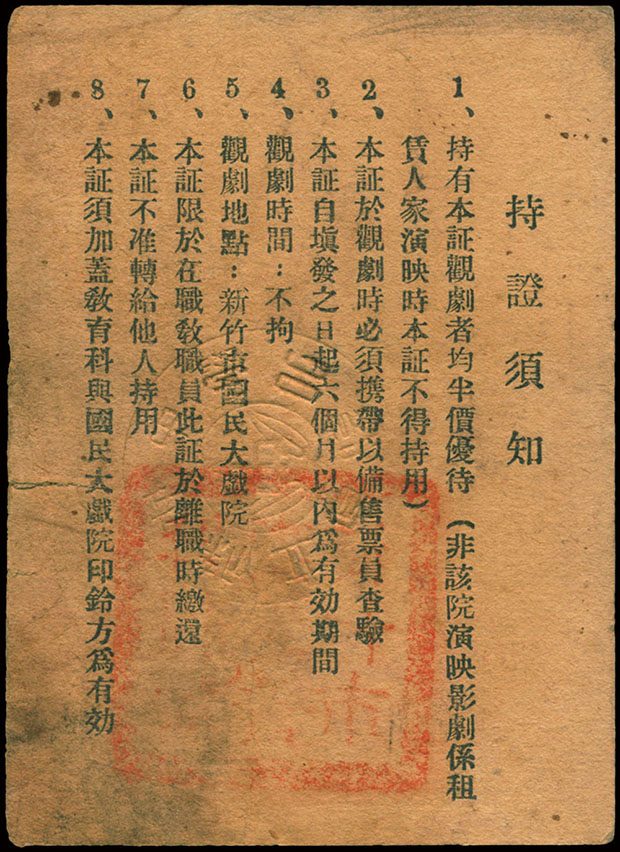 持證須知
1、持有本証觀劇者均半價優待（非該院演映影劇係租
賃人家演映時本証不得持用）
2、本証於觀劇時必須携帶以備售票員查驗
3、本証自塡發之日起六個月以內爲有効期間
4、觀劇時間：不拘
5、觀劇地點：新竹市國民大戲院
6、本証限於在職敎職員此証於離職時繳還
7、本証不准轉給他人持用
8、本証須加蓋敎育科與國民大戲院印鈴方爲有効